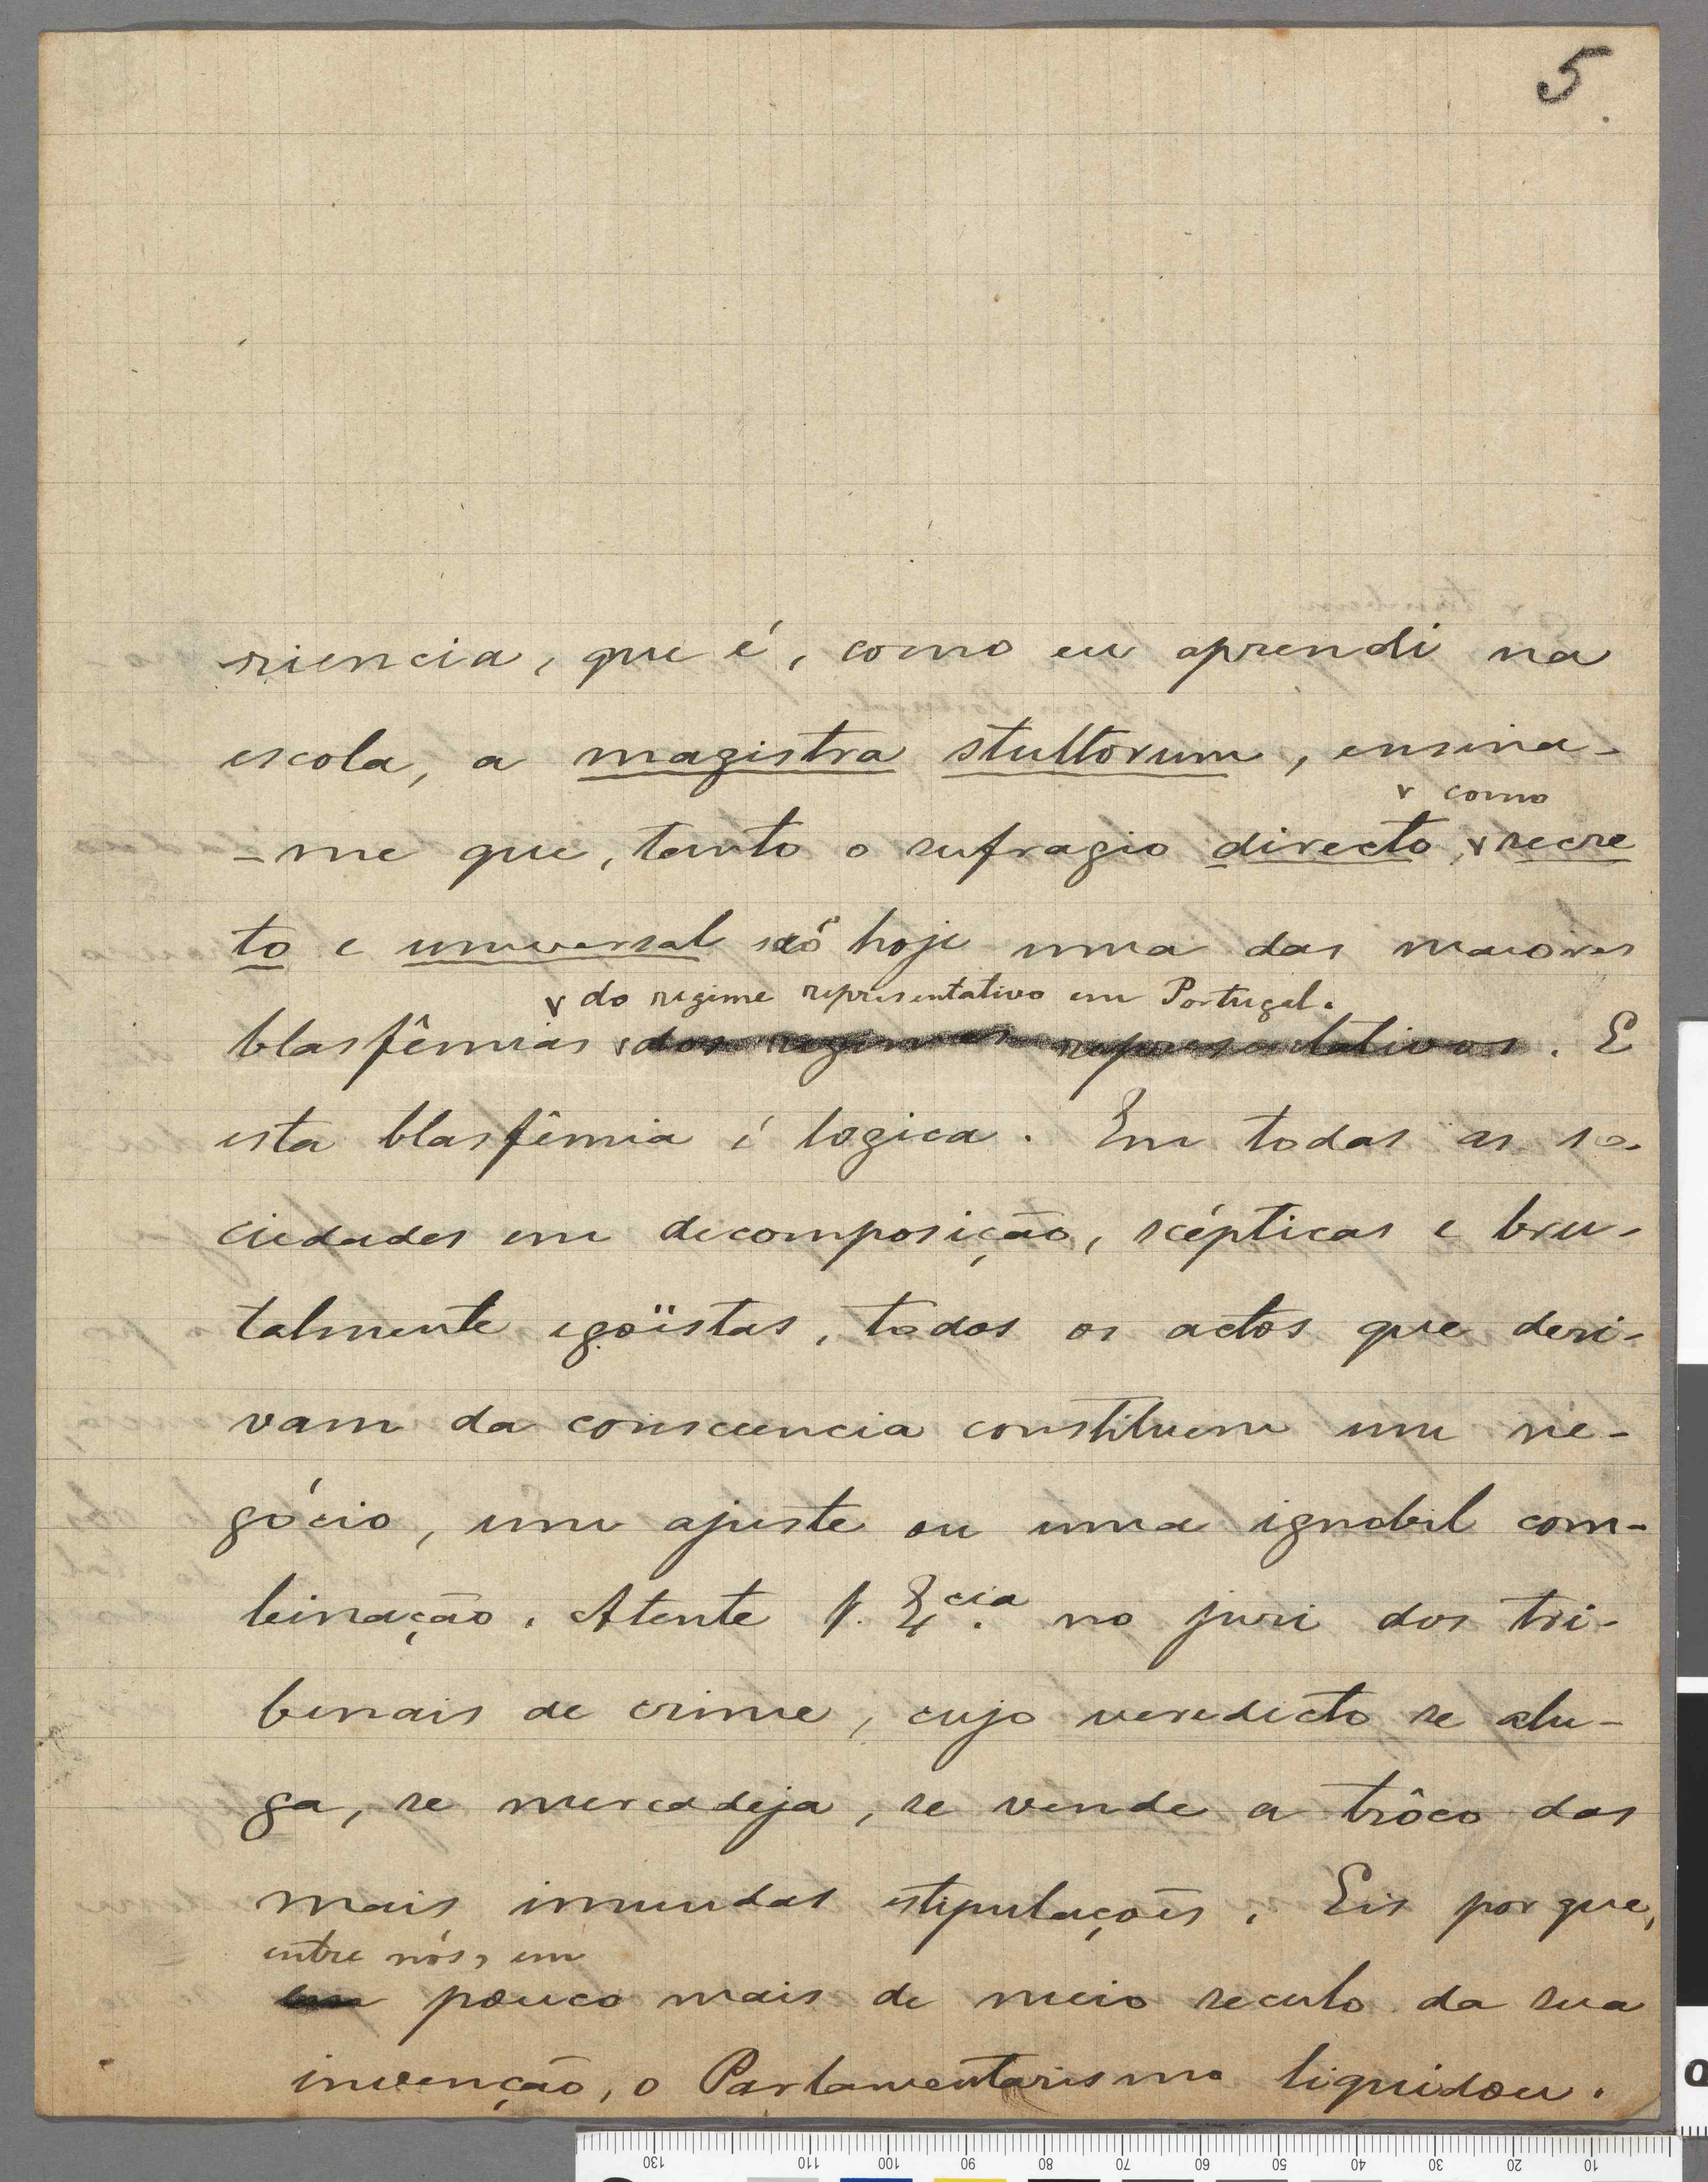 5.
riencia, que é, como eu aprendi na
escola, a magistra stultorum, ensina-
v como
-me que, tanto o sufragio directo, v secre
to e universal são hoje uma das maiores
v do regime representativo em Portugal.
blasfêmias v dos regimes representativos. E
esta blasfêmia é logica. Em todas as so-
ciedades em decomposição, scépticas e bru-
talmente egoïstas, todos os actos que deri-
vam da consciencia constituem um ne-
gócio, um ajuste ou uma ignobil com-
binação. Atente V. Ex.cia no juri dos tri-
bunais de crime, cujo veredicto se alu-
ga, se mercadeja, se vende a trôco das
mais imundas estipulações. Eis por que,
entre nós, em
em pouco mais de meio seculo da sua
invenção, o Parlamentarismo liquidou.
130 110 100 90 80 70 60 50 40 30 20 10